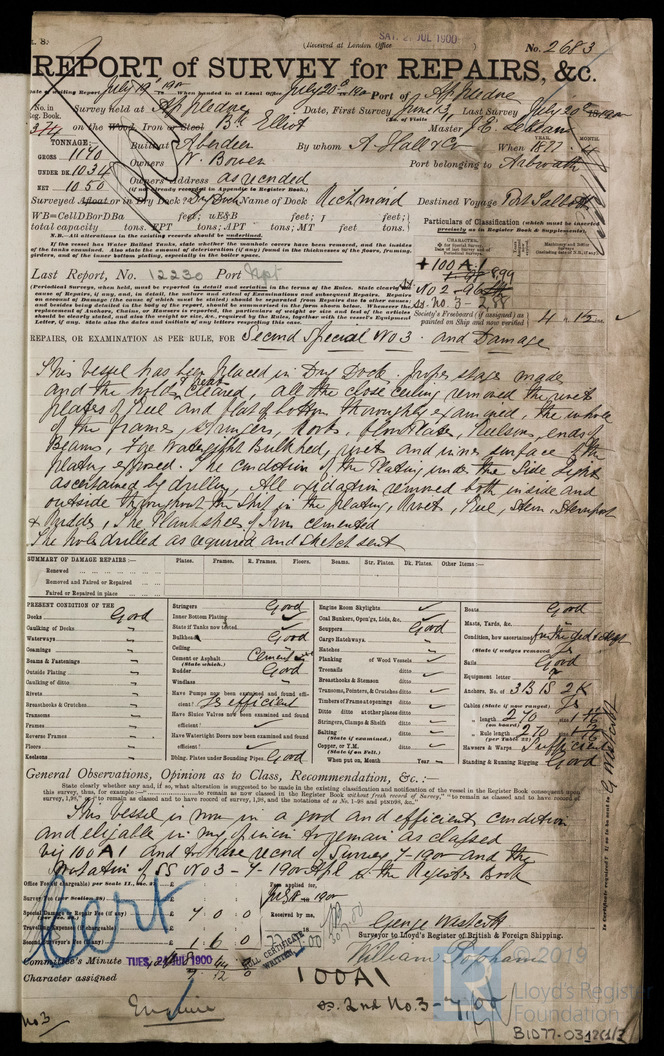 SAT. 21 JUL 1900
(Received at London Office
No. 2683
REPORT of SURVEY for REPAIRS, &c.
Date of writing Report July 19th 1900 When handed in at Local Office July 20th 1900 Port of Appledore
No. in Reg. Book. Survey held at Appledore, Date, First Survey June, Last Survey July 20th 1900
on the Wood, Iron or Steel Bk Elliot Master
TONNAGE:
GROSS 1140
UNDER DK. 1034
NET 1050
Built at Aberdeen By whom A. Hall & Co When 1877 - 4
YEAR. MONTH.
Owners W. Bowen Port belonging to
Owners' Address as recorded
(if not already recorded in Appendix to Register Book).
Surveyed Afloat or in Dry Dock? Dry Dock Name of Dock Richmond Destined Voyage Port Talbot
WB=CellDBorDBa feet; uE&B feet; f feet;
total capacity tons. FPT tons; APT tons; MT feet tons.
N.B.—All alterations in the existing records should be underlined.
Particulars of Classification (which must be inserted precisely as in Register Book & Supplements).
If the vessel has Water Ballast Tanks, state whether the manhole covers have been removed, and the insides
of the tanks examined. Also state the amount of deterioration (if any) found in the thicknesses of the floors, framing,
girders, and of the inner bottom plating, especially in the boiler space.
CHARACTER.
+100A1
8,99
No 2 - 96
ss. No. 3 - 2,88
Last Report, No. 12230 Port Npt
(Periodical Surveys, when held, must be reported in detail and seriatim in the terms of the Rules. State clearly the cause of Repairs, if any, and, in detail, the nature and extent of Examinations and subsequent Repairs. Repairs on account of Damage (the cause of which must be stated) should be separated from Repairs due to other causes;
and besides being detailed in the body of the report, should be summarised in the form shown below.
Society's Freeboard (if assigned) as painted on Ship and now verified 4 ft 1½
REPAIRS, OR EXAMINATION AS PER RULE, FOR Second Special No 3. and Damage
This vessel has been placed in Dry Dock. Proper stages made
and the holds cleared all the close ceiling removed the
plates of Keel and flat of bottom thoroughly examined, the whole
of the frames, stringers, Hooks, floor Plates, Keelsons, ends of
Beams, Fore Watertight Bulkhead, rivets and inner surface of the
plating exposed. The condition of the Plating under the Side Lights
ascertained by drilling. All oxidation removed both inside and
outside throughout the Ship in the plating, Rivets, Keel, Stem, Sternpost
& Rudder, The Plank sheer of Iron cemented
The hole drilled as required and Sketch sent
SUMMARY OF DAMAGE REPAIRS:— Plates. Frames. R. Frames. Floors. Beams. Str. Plates. Dk. Plates. Other Items:—
Renewed
Removed and Faired or Repaired
Faired or Repaired in place
PRESENT CONDITION OF THE
Decks Good
Caulking of Decks "
Waterways "
Coamings "
Beams & Fastenings "
Outside Plating "
Caulking of ditto "
Rivets "
Breasthooks & Crutches "
Transoms "
Frames "
Reverse Frames "
Floors "
Keelsons "
Stringers Good
Inner Bottom Plating
State if Tanks now tested.
Bulkheads Good
Ceiling "
Cement or Asphalt (State which.) Cement
Rudder Good
Windlass "
Have Pumps now been examined and found efficient? Yes efficient
Have Sluice Valves now been examined and found efficient?
Have Watertight Doors now been examined and found efficient?
Dbling. Plates under Sounding Pipes. Good
Engine Room Skylights
Coal Bunkers, Open'gs, Lids, &c.
Scuppers Good
Cargo Hatchways "
Hatches "
Planking of Wood Vessels
Treenails ditto
Breasthooks & Stemson ditto
Transoms, Pointers, & Crutches ditto
Timbers of Frame at openings ditto
Ditto ditto at other places ditto
Stringers, Clamps & Shelfs ditto
Salting ditto
(State if examined.)
Copper, or Y.M. ditto
(State if on Felt.)
When put on, Month Year
Boats Good
Masts, Yards, &c. "
Condition, how ascertained
(State if wedges removed) Yes
Sails Good
Equipment letter
Anchors, No. of 3B 1S 2K
Cables (State if now ranged) Yes
" length 270
(on board)
" Rule length 270
(per Table 22)
Hawsers & Warps Sufficient
Standing & Running Rigging Good
General Observations, Opinion as to Class, Recommendation, &c.:—
State clearly whether any, and if so, what alteration is suggested to be made in the existing classification and notification of the vessel in the Register Book consequent upon
This vessel is now in a good and efficient condition
and eligible in my opinion to remain as classed
viz 100A1 and to have record of Survey 7-1900 and the
Notation of SS No 3 - 7-1900 Apl in the Register Book
Office Fee (if chargeable) per Scale II.
Survey Fee (per Section 28)
Special Damage or Repair Fee (if any) £ 4 . 0 . 0
Travelling Expenses (if chargeable) £
Second Surveyor's Fee £
Fees applied for,
Received by me,
Cert
Committee's Minute TUES. 24 JUL 1900
Character assigned
100A1
ss. 2nd No. 3 - 7,00
CERTIFICATE WRITTEN
George Westcott
Surveyor to Lloyd's Register of British & Foreign Shipping.
William Popham
Is Certificate required? If so, to be sent to G Westcott
© 2019
LR
Lloyd's Register
Foundation
BID77-0312(1/3
No 3